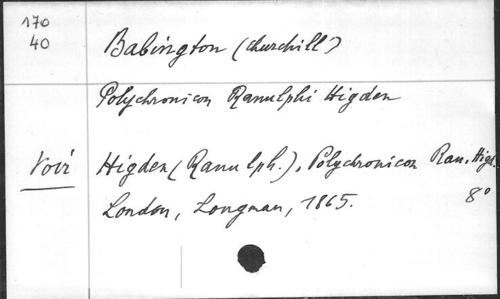 170
40
Babington (Churchill)
Polychronicon Ranulphi Higden
Voir
Higden (Ranulph.), Polychronicon Ran. Higd.
London, Longman, 1865. 8°